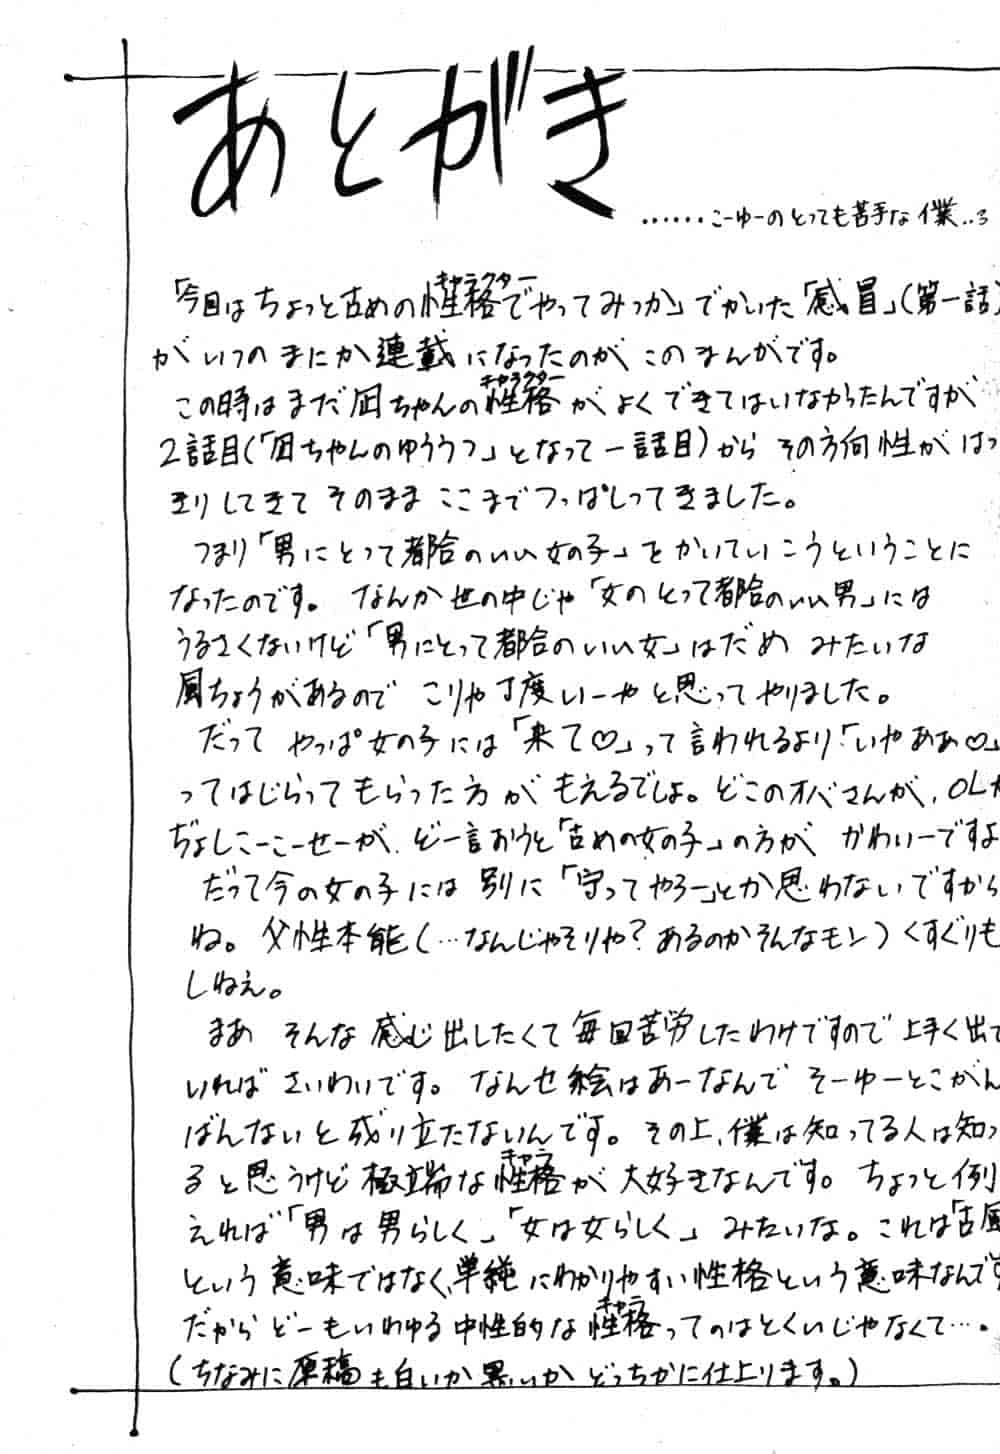 あとがき
……こーゆーのとっても苦手な僕‥
「今日はちょっと古めの性格でやってみっか」でかいた「感冒」(第一話)
がいつのまにか連載になったのがこのまんがです。
この時はまだ凪ちゃんの性格がよくできてはいなかったんですが
2話目(「凪ちゃんのゆううつ」となって一話目)からその方向性がはっ
きりしてきてそのままここまでつっぱしってきました。
つまり「男にとって都合のいい女の子」をかいていこうということに
なったのです。なんか世の中じゃ「女のとって都合のいい男」には
うるさくないけど「男にとって都合のいい女」はだめ みたいな
風ちょうがあるので こりゃ丁度いーやと思ってやりました。
だって やっぱ女の子には「来て♡」って言われるより「いやああ♡」
ってはじらってもらった方が もえるでしょ。どこのオバさんが、OLが
ぢょしこーこーせーが、どー言おうと「古めの女の子」の方が かわいーですよ
だって今の女の子には 別に「守ってやろー」とか思わないですから
ね。父性本能(…なんじゃそりゃ?あるのかそんなモン)くすぐりも
しねえ。
まあ そんな感じ出したくて毎回苦労したわけですので上手く出て
いればさいわいです。なんせ絵はあーなんで そーゆーとこがん
ばんないと成り立たないんです。その上、僕は知ってる人は知っ
ると思うけど極端な性格が大好きなんです。ちょっと例
えれば「男は男らしく」「女は女らしく」みたいな。これは「古風
という意味ではなく、単純にわかりやすい性格という意味なんです
だから どーもいわゆる中性的な性格ってのはとくいじゃなくて…。
(ちなみに原稿も白いか黒いかどっちかに仕上ります。)